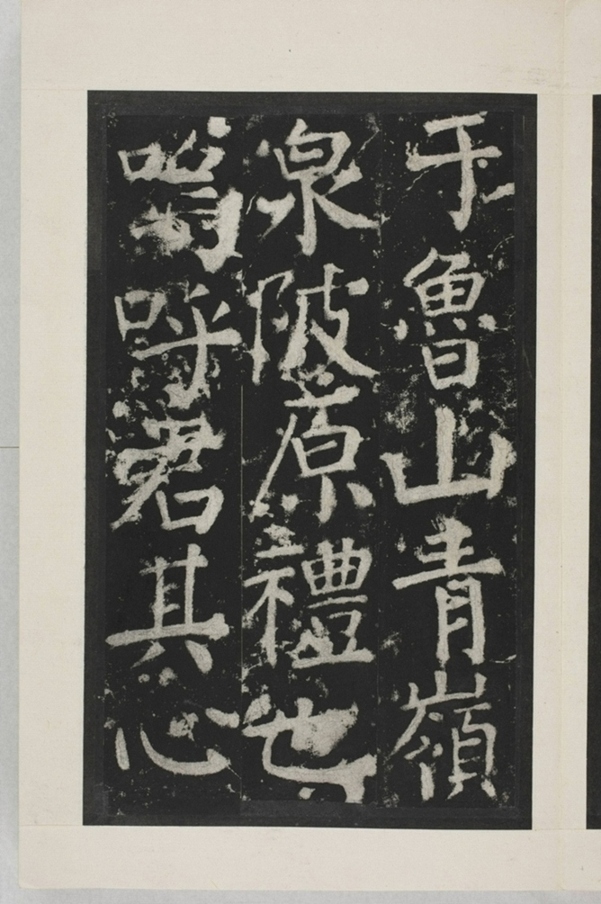 于魯山青嶺
泉陂原禮也
嗚呼君其心